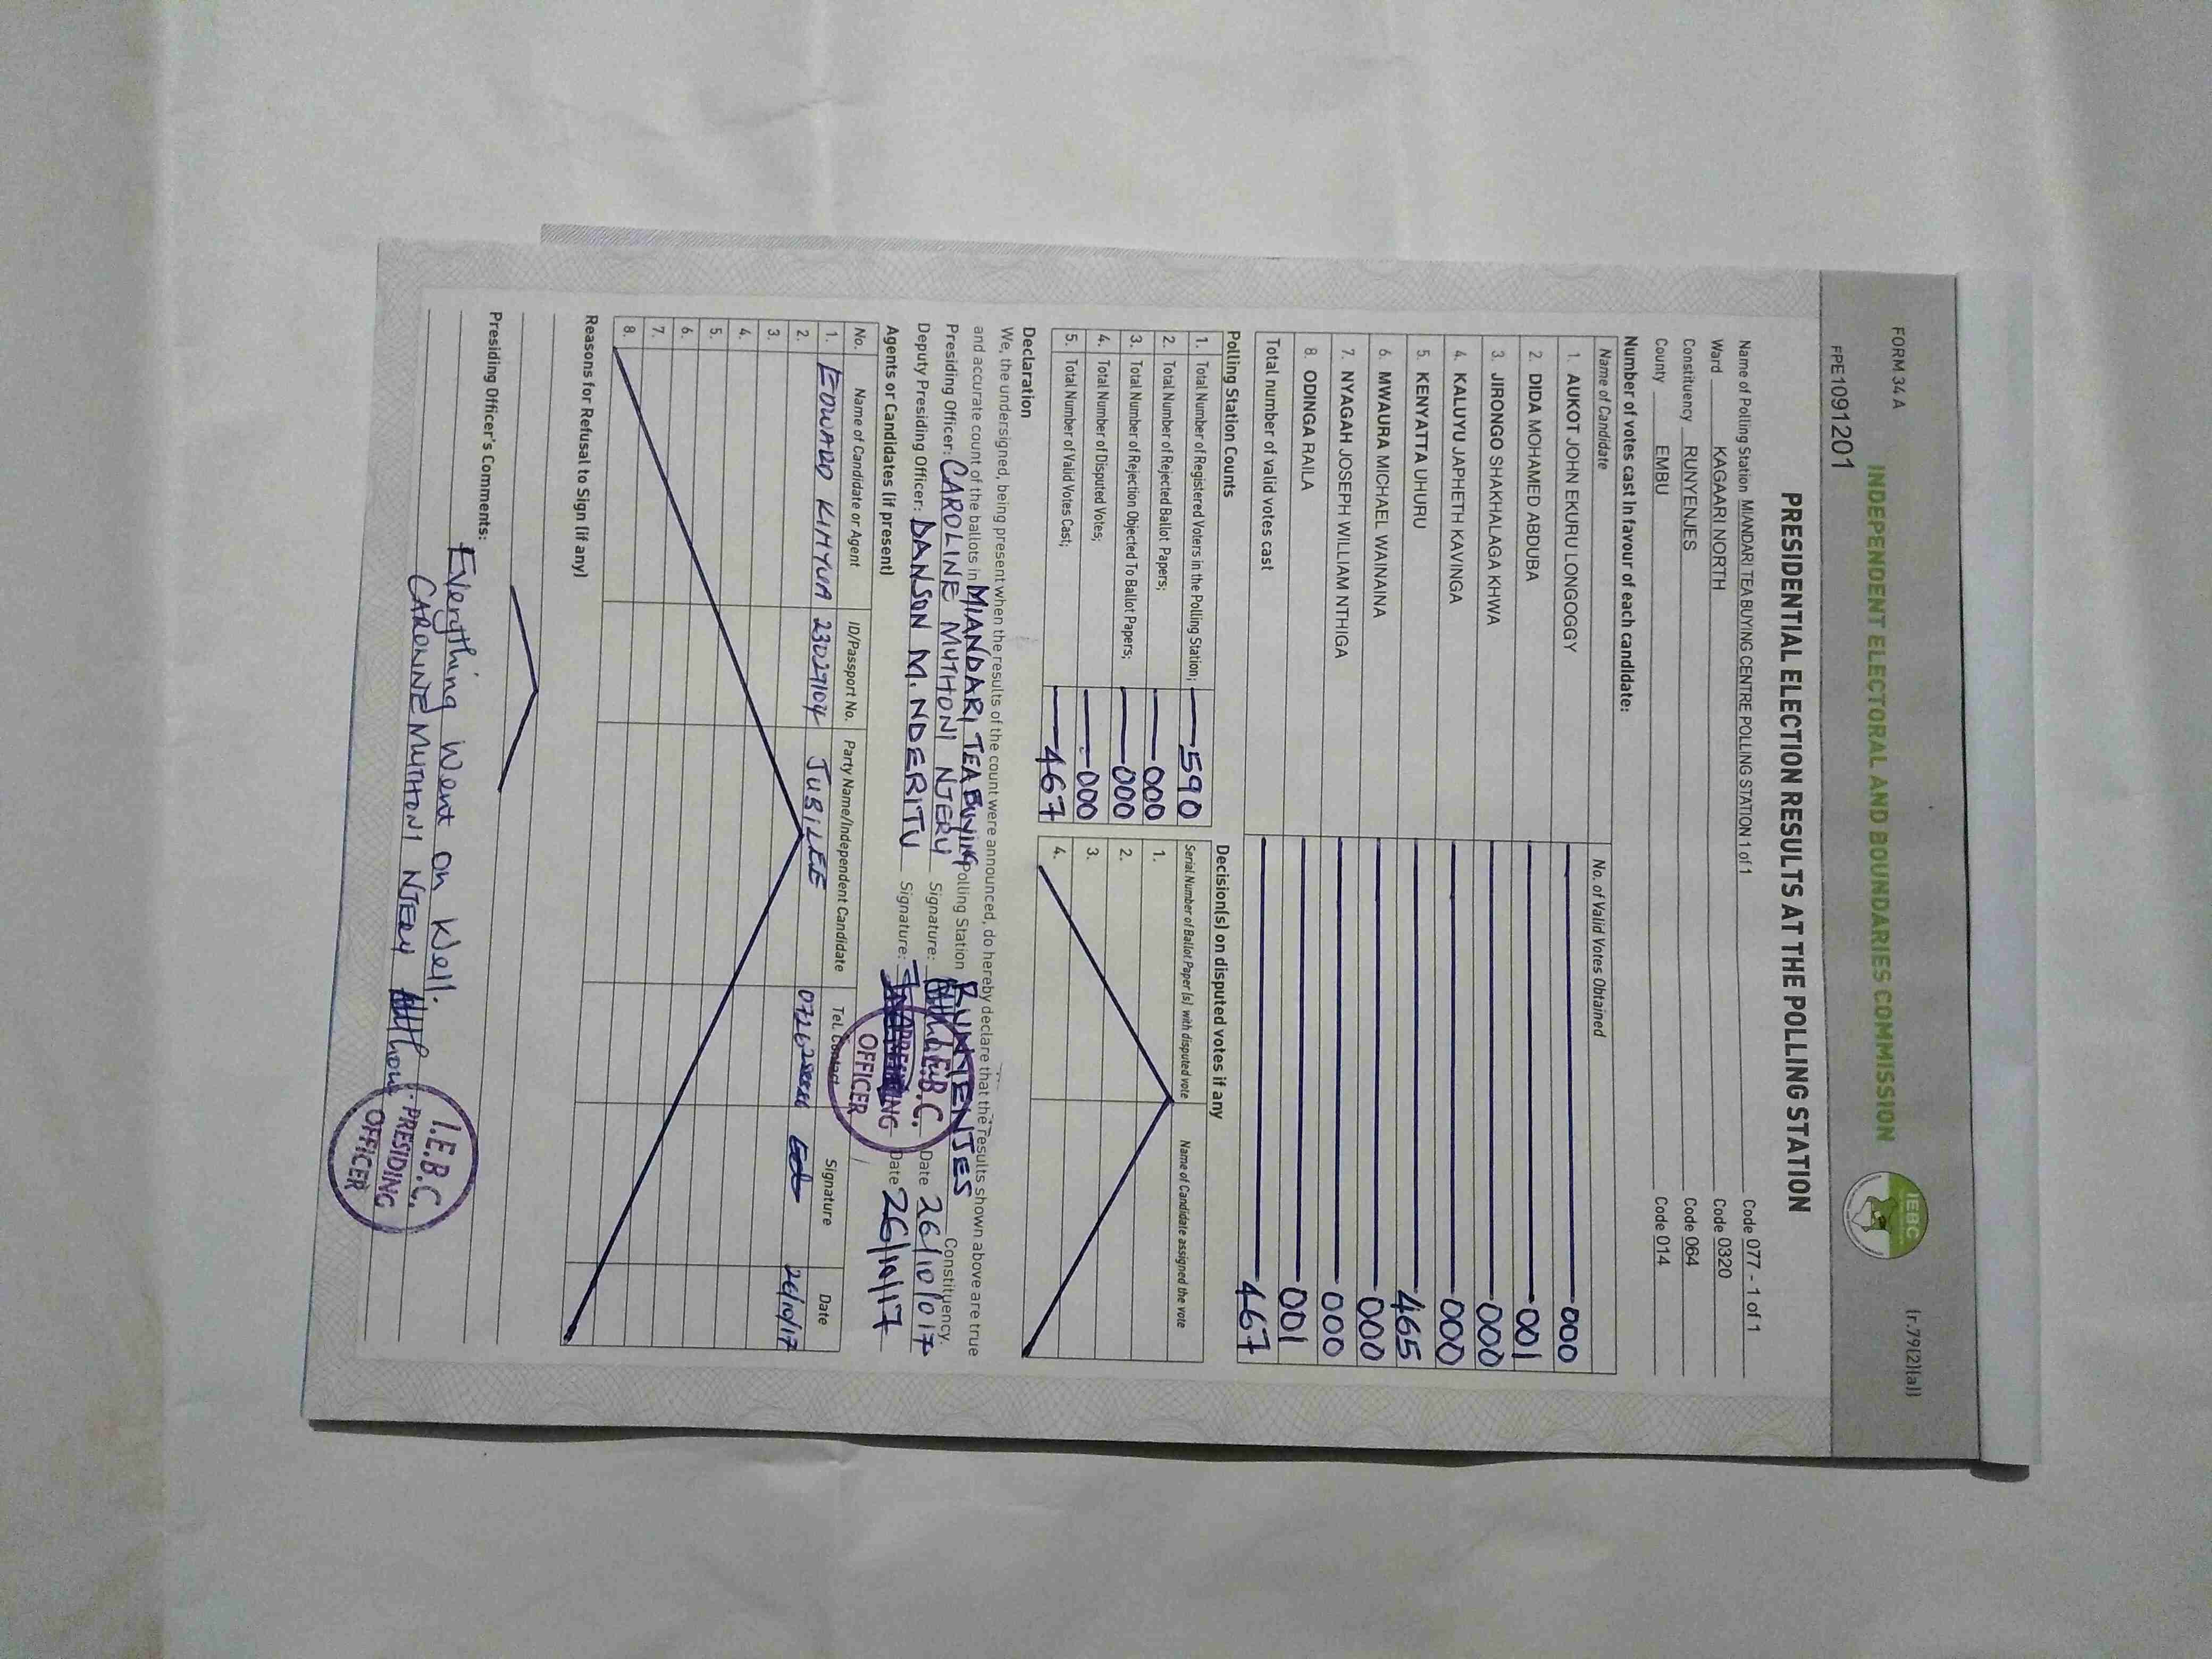 FORM 34 A
(r.79(2)(a))
INDEPENDENT ELECTORAL AND BOUNDARIES COMMISSION
IEBC
FPE1091201
PRESIDENTIAL ELECTION RESULTS AT THE POLLING STATION
Name of Polling Station MIANDARI TEA BUYING CENTRE POLLING STATION 1 of 1 Code 077 - 1 of 1
Ward KAGAARI NORTH Code 0320
Constituency RUNYENJES Code 064
County EMBU Code 014
Number of votes cast in favour of each candidate:
Name of Candidate No. of Valid Votes Obtained
1. AUKOT JOHN EKURU LONGOGGY 000
2. DIDA MOHAMED ABDUBA 001
3. JIRONGO SHAKHALAGA KHWA 000
4. KALUYU JAPHETH KAVINGA 000
5. KENYATTA UHURU 465
6. MWAURA MICHAEL WAINAINA 000
7. NYAGAH JOSEPH WILLIAM NTHIGA 000
8. ODINGA RAILA 001
Total number of valid votes cast 467
Polling Station Counts
1. Total Number of Registered Voters in the Polling Station; 590
2. Total Number of Rejected Ballot Papers; 000
3. Total Number of Rejection Objected To Ballot Papers; 000
4. Total Number of Disputed Votes; 000
5. Total Number of Valid Votes Cast; 467
Decision(s) on disputed votes if any
Serial Number of Ballot Paper (s) with disputed vote Name of Candidate assigned the vote
1.
2.
3.
4.
Declaration
We, the undersigned, being present when the results of the count were announced, do hereby declare that the results shown above are true
and accurate count of the ballots in MIANDARI TEA BUYING Polling Station RUNYENJES Constituency.
Presiding Officer: CAROLINE MUTHONI NJERU Signature: Date 26/10/017
Deputy Presiding Officer: DANSON M. NDERITU Signature: Date 26/10/17
I.E.B.C.
PRESIDING
OFFICER
Agents or Candidates (if present)
No. Name of Candidate or Agent ID/Passport No. Party Name/Independent Candidate Tel. Contact Signature Date
1. EDWARD KIMYUA 23029104 JUBILEE 26/10/17
2.
3.
4.
5.
6.
7.
8.
Reasons for Refusal to Sign (if any)
Presiding Officer's Comments:
Everything Went on Well.
CAROLINE MUTHONI NJERU
I.E.B.C.
PRESIDING
OFFICER